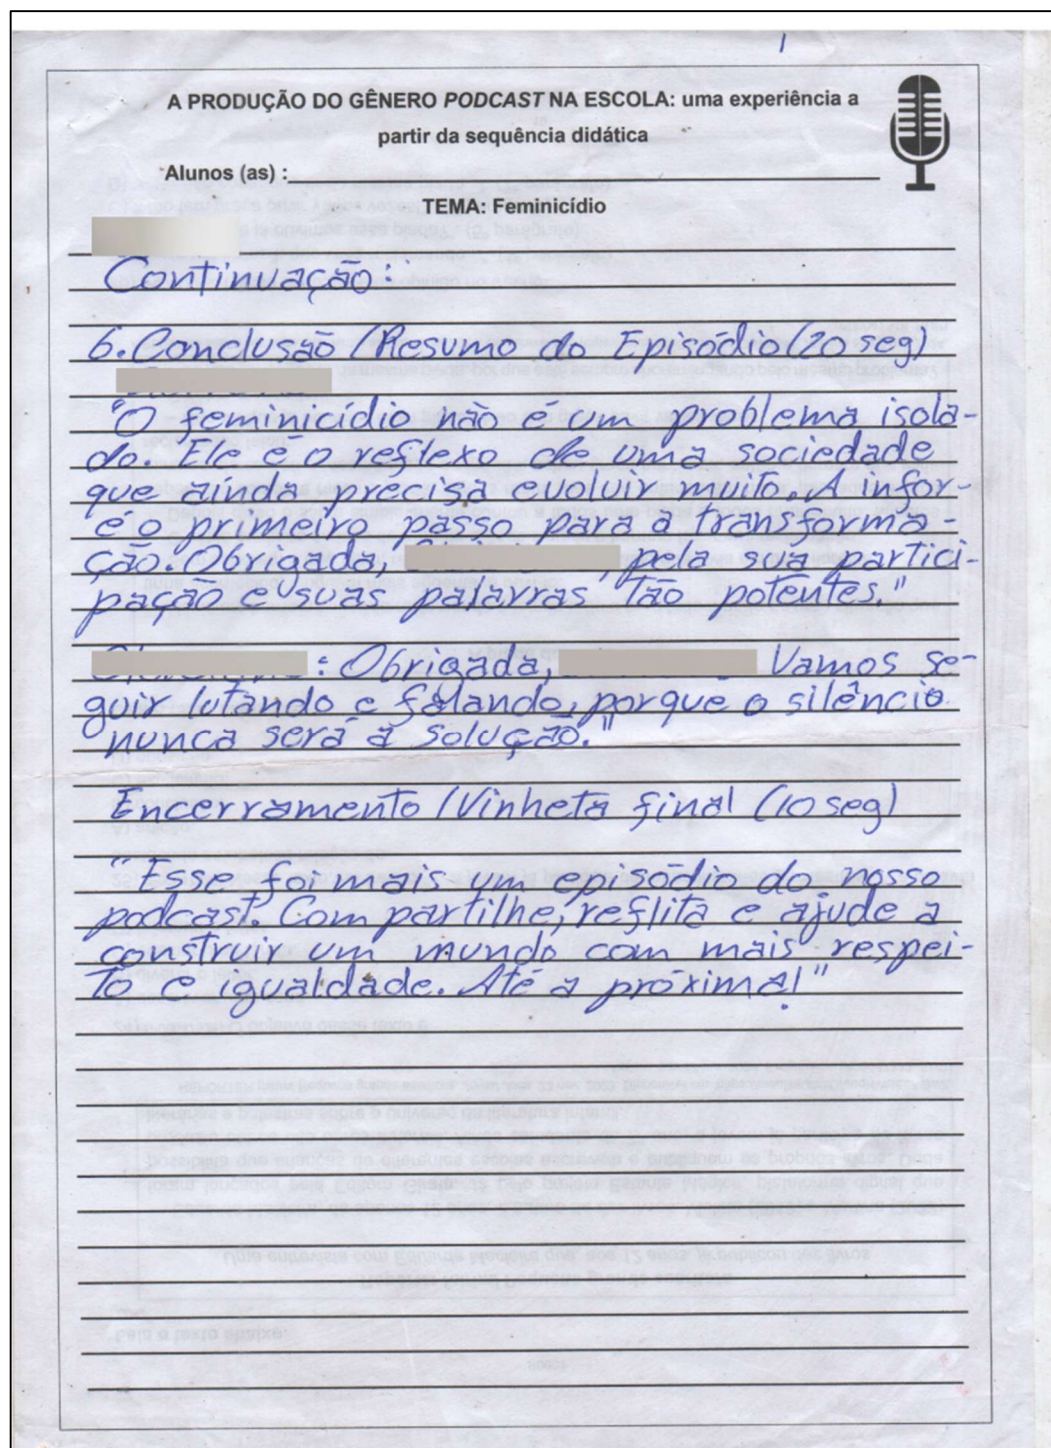 1
A PRODUÇÃO DO GÊNERO PODCAST NA ESCOLA: uma experiência a
partir da sequência didática
Alunos (as) :
TEMA: Feminicídio
Continuação:
6. Conclusão / Resumo do Episódio (20 seg)
"O feminicídio não é um problema isola-
do. Ele é o reflexo de uma sociedade
que ainda precisa evoluir muito. A infor-
é o primeiro passo para a transforma-
ção. Obrigada, , pela sua partici-
pação e suas palavras tão potentes."
: Obrigada, Vamos se-
guir lutando e falando, porque o silêncio
nunca será a solução."
Encerramento / Vinheta final (10 seg)
"Esse foi mais um episódio do nosso
podcast. Compartilhe, reflita e ajude a
construir um mundo com mais respei-
to e igualdade. Até a próxima!"